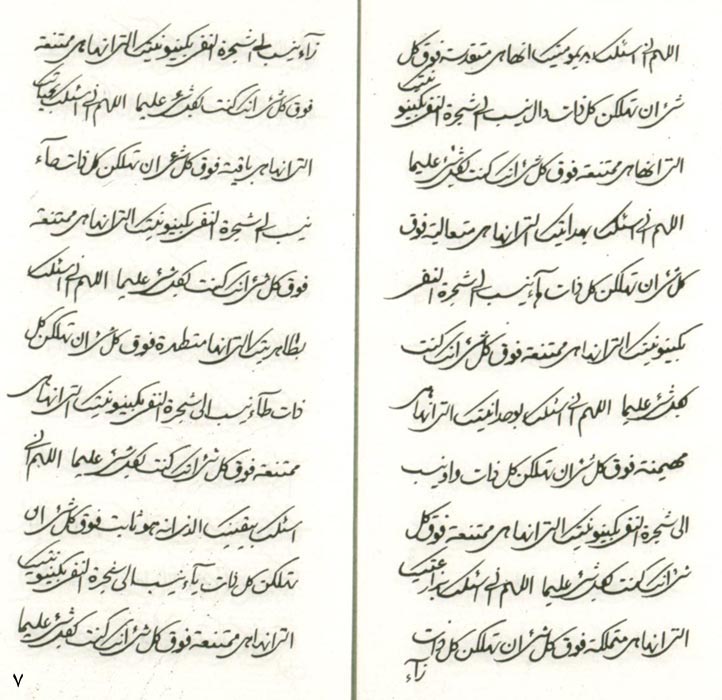 اللهم انی اسئلک بدیمومیتک انها هی متقدسة فوق کل
شئ ان تهلکن کل ذات دال نیسب الی شجرة النفی بکینونیتک
التی انها هی ممتنعة فوق کل شئ انک کنت لکل شئ علیما
اللهم انی اسئلک بهدانیتک التی انها هی متعالیة فوق
کل شئ ان تهلکن کل ذات هآء نیسب الی شجرة النفی
بکینونیتک التی انها هی ممتنعة فوق کل شئ انک کنت
لکل شئ علیما اللهم انی اسئلک بوحدانیتک التی انها هی
مهیمنة فوق کل شئ ان تهلکن کل ذات واو نیسب
الی شجرة النفی بکینونیتک التی انها هی ممتنعة فوق کل
شئ انک کنت لکل شئ علیما اللهم انی اسئلک
التی انها هی متملکة فوق کل شئ ان تهلکن کل ذات
زآء
زآء نیسب الی شجرة النفی بکینونیتک التی انها هی ممتنعة
فوق کل شئ انک کنت لکل شئ علیما اللهم انی اسئلک
التی انها هی باقیة فوق کل شئ ان تهلکن کل ذات حآء
نیسب الی شجرة النفی بکینونیتک التی انها هی ممتنعة
فوق کل شئ انک کنت لکل شئ علیما اللهم انی اسئلک
بطاهریتک التی انها متطهرة فوق کل شئ ان تهلکن کل
ذات طآء نیسب الی شجرة النفی بکینونیتک التی انها هی
ممتنعة فوق کل شئ انک کنت لکل شئ علیما اللهم انی
اسئلک بیقینیتک الذی انه هو ثابت فوق کل شئ ان
تهلکن کل ذات یآء نیسب الی شجرة النفی بکینونیتک
التی انها هی ممتنعة فوق کل شئ انک کنت لکل شئ علیما
۷